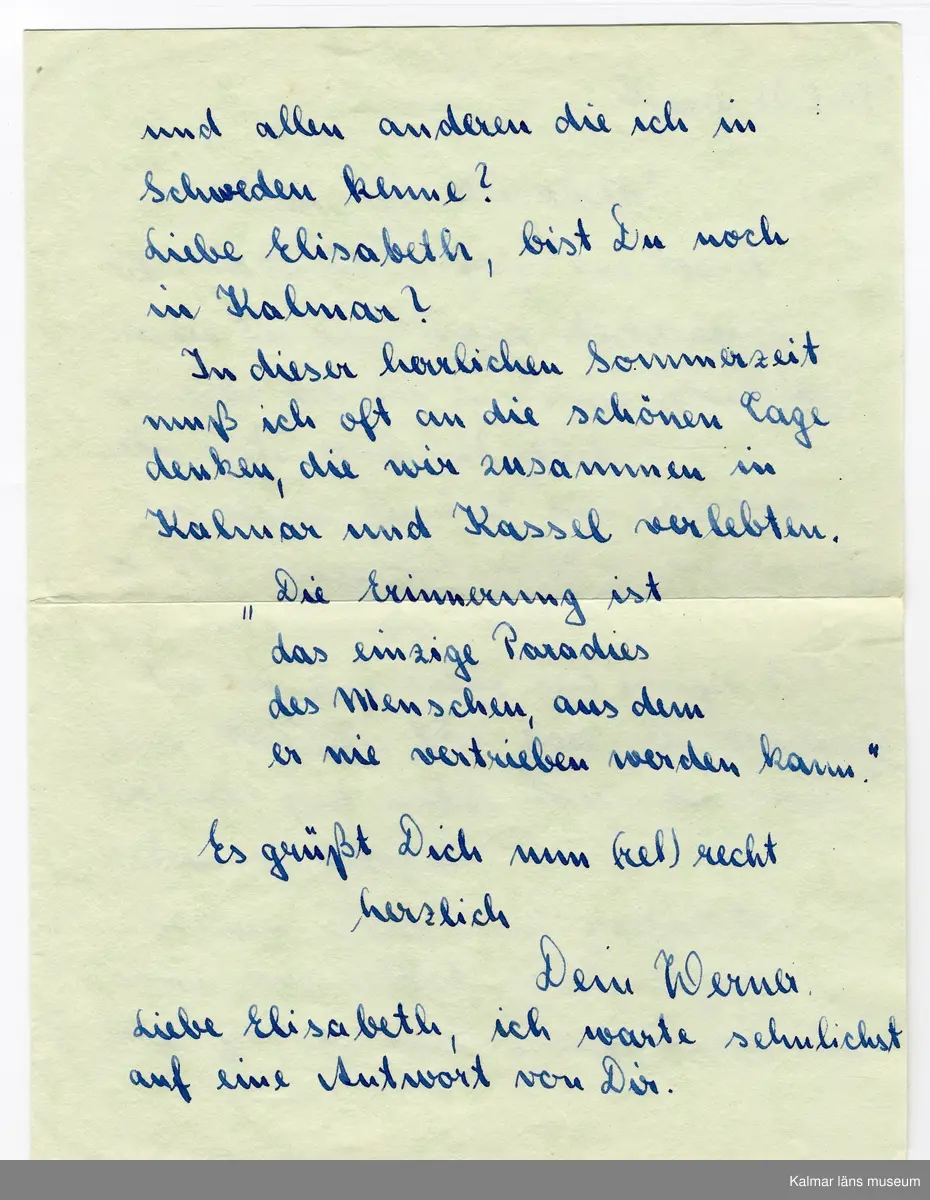 und allen anderen die ich in
Schweden kenne?
Liebe Elisabeth, bist Du noch
in Kalmar?
In dieser herrlichen Sommerzeit
muß ich oft an die schönen Tage
denken, die wir zusammen in
Kalmar und Kassel verlebten.
„Die Erinnerung ist
das einzige Paradies
des Menschen, aus dem
er nie vertrieben werden kann."
Es grüßt Dich nun (rel) recht
herzlich
Dein Werner.
Liebe Elisabeth, ich warte sehnlichst
auf eine Antwort von Dir.
Kalmar läns museum